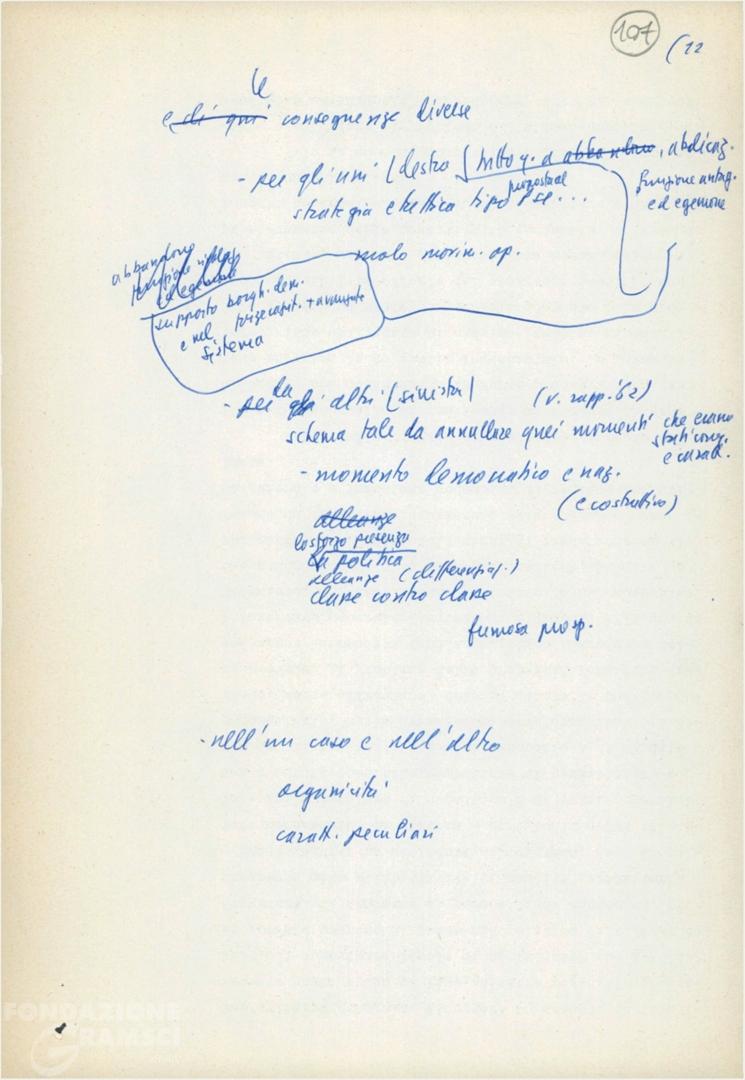 107
(12
le
e di qui conseguenze diverse
- per gli uni (destra) tutto q. a abbandono, abdicaz.
funzione antag.
ed egemone
strategia e tattica tipo PSI ...
ruolo movim. op.
abbandono
ed egemone
supporto borgh. dem.
e nel capit. + avanzato
sistema
- per gli altri (sinistra) (v. rapp. '62)
da
schema tale da annullare quei momenti che erano
stati
e caratt.
- momento democratico e naz.
(e costruttivo)
alleanze
lo sforzo presenza
la politica
alleanze (differenziaz.)
classe contro classe
fumosa prosp.
- nell'un caso e nell'altro
organicità
caratt. peculiari
FONDAZIONE
GRAMSCI